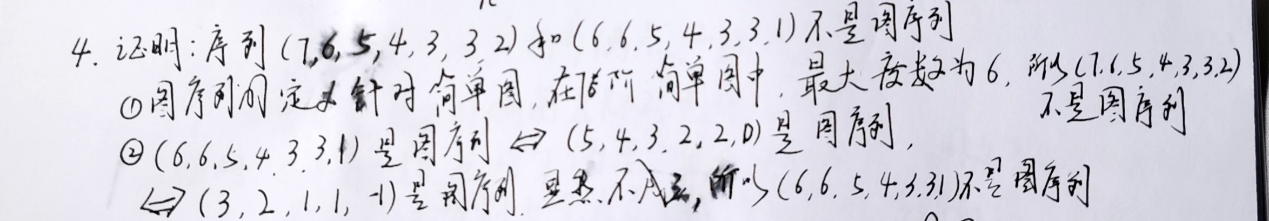 4. 证明:序列(7,6,5,4,3,3,2)和(6,6,5,4,3,3,1)不是图序列
①图序列的定义针对简单图,在7阶简单图中,最大度数为6,所以(7,6,5,4,3,3,2)
不是图序列
②(6,6,5,4,3,3,1)是图序列⇔(5,4,3,2,2,0)是图序列,
⇔(3,2,1,1,-1)是图序列.显然不成立,所以(6,6,5,4,3,3,1)不是图序列